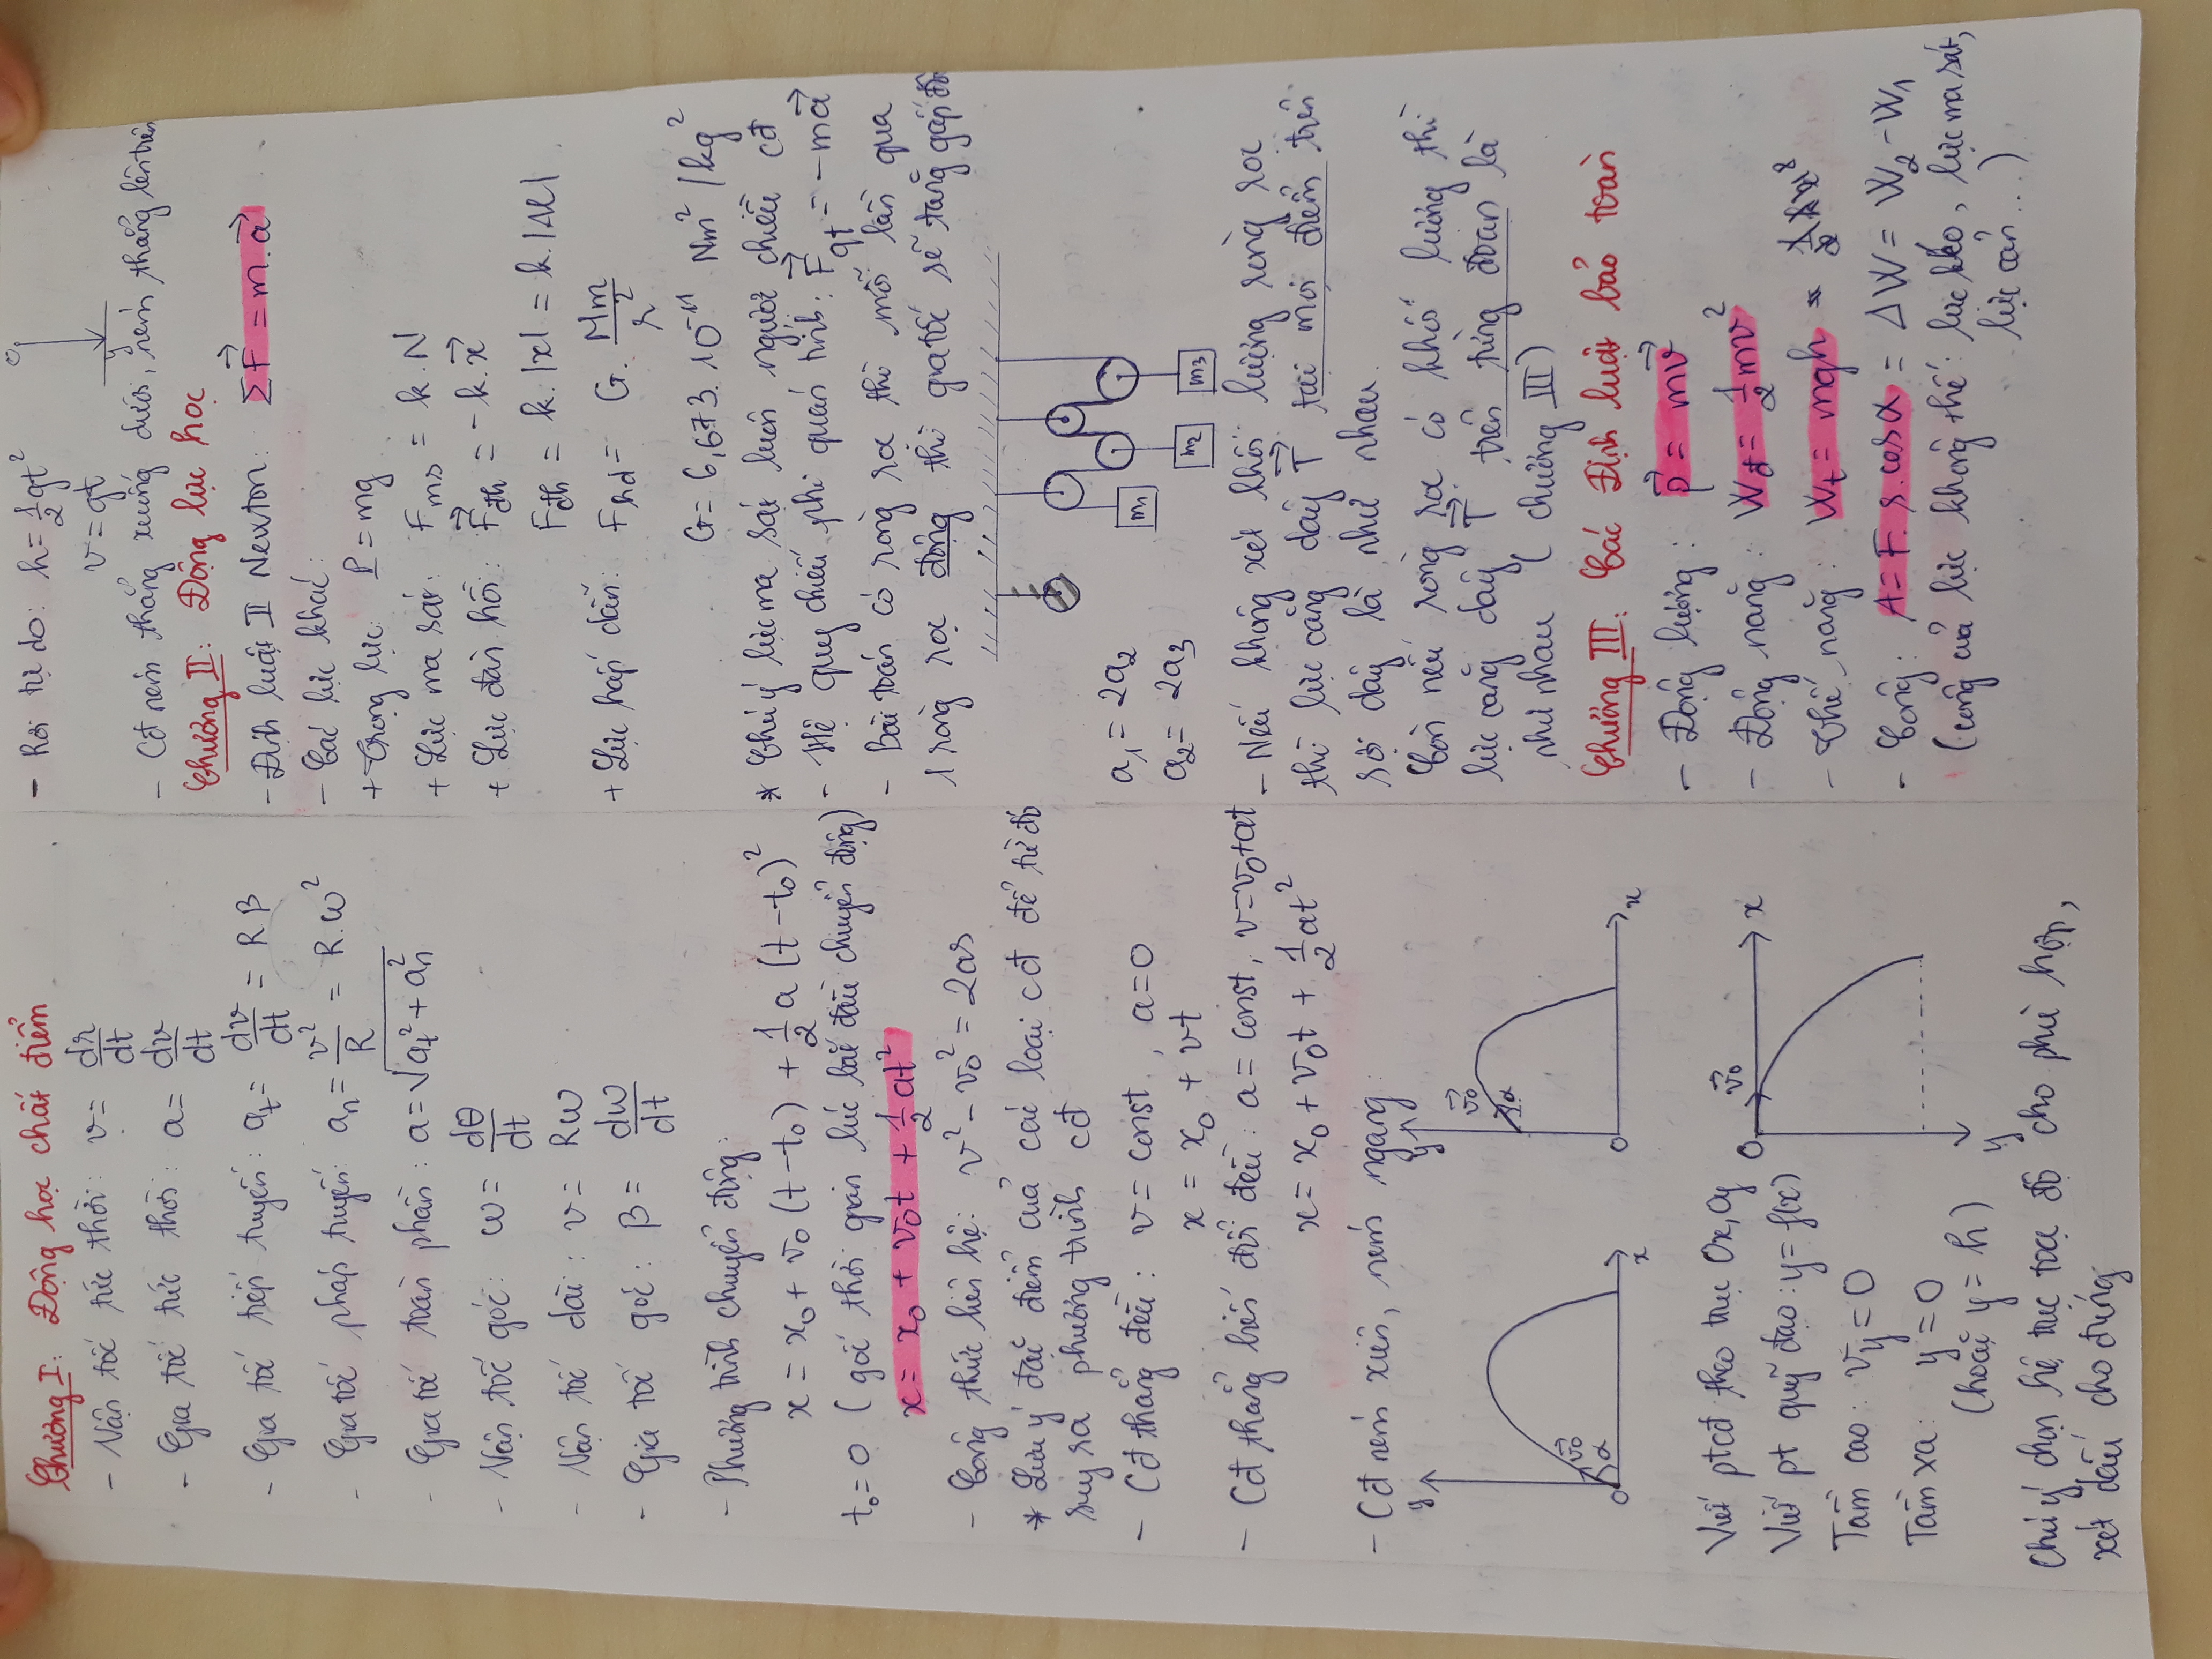 Chương I: Động học chất điểm
- Vận tốc tức thời: v = dr/dt
- Gia tốc tức thời: a = dv/dt
- Gia tốc tiếp tuyến: a_t = dv/dt = R.β
- Gia tốc pháp tuyến: a_n = v²/R = R.ω²
- Gia tốc toàn phần: a = √(a_t² + a_n²)
- Vận tốc góc: ω = dθ/dt
- Vận tốc dài: v = Rω
- Gia tốc góc: β = dω/dt
- Phương trình chuyển động:
x = x₀ + v₀(t-t₀) + 1/2 a(t-t₀)²
t₀ = 0 (gốc thời gian lúc bắt đầu chuyển động)
x = x₀ + v₀t + 1/2 at²
- Công thức liên hệ: v² - v₀² = 2as
* Lưu ý đặc điểm của các loại cđ để từ đó
suy ra phương trình cđ
- Cđ thẳng đều: v = const, a = 0
x = x₀ + vt
- Cđ thẳng biến đổi đều: a = const, v = v₀ + at
x = x₀ + v₀t + 1/2 at²
- Cđ ném xiên, ném ngang:
y
v₀
α
O
x
y
v₀
α
O
x
Viết ptcđ theo trục Ox, Oy
Viết pt quỹ đạo: y = f(x)
Tầm cao: v_y = 0
Tầm xa: y = 0
(hoặc y = h)
O
v₀
x
y
Chú ý chọn hệ trục toạ độ cho phù hợp,
xét dấu cho đúng
- Rơi tự do: h = 1/2 gt²
v = gt
O
y
- Cđ ném thẳng xuống dưới, ném thẳng lên trên
Chương II: Động lực học
- Định luật II Newton: ΣF⃗ = m.a⃗
- Các lực khác:
+ Trọng lực: P = mg
+ Lực ma sát: F_ms = k.N
+ Lực đàn hồi: F⃗_đh = -k.x⃗
F_đh = k.|x| = k.|Δl|
+ Lực hấp dẫn: F_hd = G. Mm/r²
G = 6,673.10⁻¹¹ Nm²/kg²
* Chú ý lực ma sát luôn ngược chiều cđ
- Hệ quy chiếu phi quán tính: F⃗_qt = -ma⃗
- Bài toán có ròng rọc thì mỗi lần qua
1 ròng rọc động thì gia tốc sẽ tăng gấp đôi
a₁ = 2a₂
a₂ = 2a₃
m₁
m₂
m₃
- Nếu không xét khối lượng ròng rọc
thì lực căng dây T⃗ tại mọi điểm trên
sợi dây là như nhau.
Còn nếu ròng rọc có khối lượng thì
lực căng dây T⃗ trên từng đoạn là
như nhau (chương III)
Chương III: Các Định luật bảo toàn
- Động lượng: p⃗ = mv⃗
- Động năng: W_đ = 1/2 mv²
- Thế năng: W_t = mgh
- Công: A = F.s.cosα = ΔW = W₂ - W₁
(công của lực không thế: lực kéo, lực ma sát,
lực cản...)